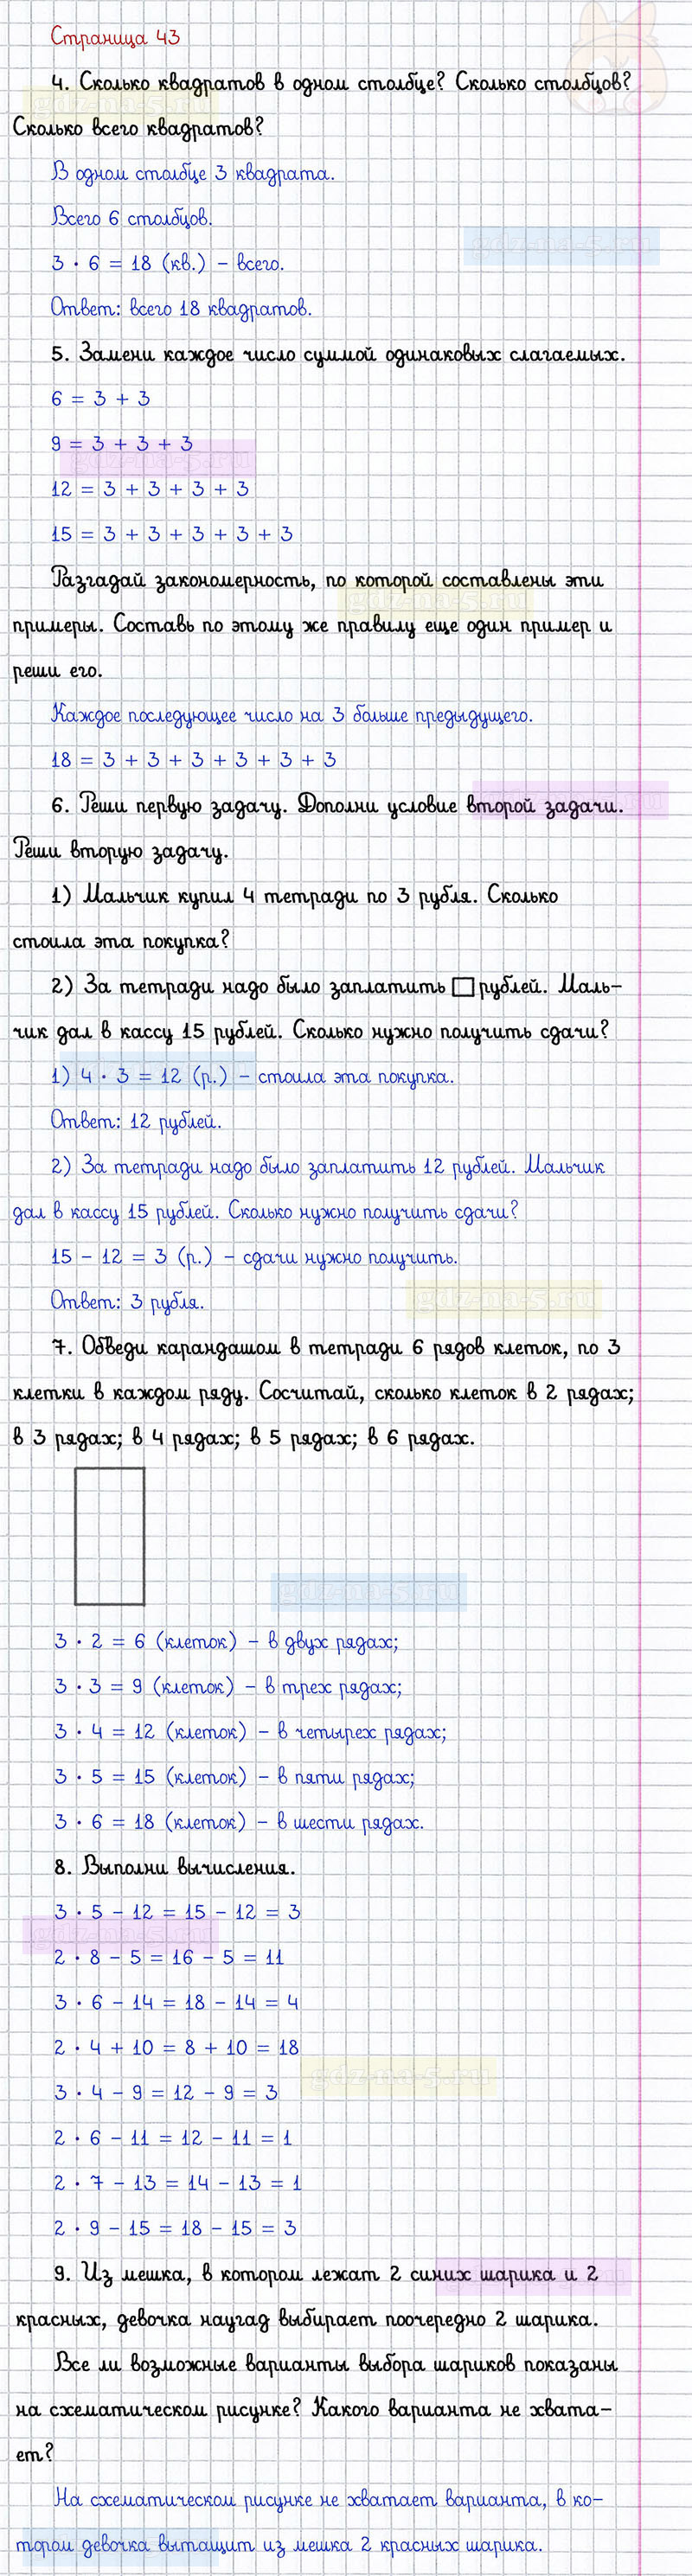 Страница 43
4. Сколько квадратов в одном столбце? Сколько столбцов?
Сколько всего квадратов?
gdz-na-5.ru
В одном столбце 3 квадрата.
Всего 6 столбцов.
gdz-na-5.ru
3 · 6 = 18 (кв.) - всего.
Ответ: всего 18 квадратов.
5. Замени каждое число суммой одинаковых слагаемых.
6 = 3 + 3
9 = 3 + 3 + 3
gdz-na-5.ru
12 = 3 + 3 + 3 + 3
15 = 3 + 3 + 3 + 3 + 3
Разгадай закономерность, по которой составлены эти
gdz-na-5.ru
примеры. Составь по этому же правилу еще один пример и
реши его.
Каждое последующее число на 3 больше предыдущего.
18 = 3 + 3 + 3 + 3 + 3 + 3
6. Реши первую задачу. Дополни условие второй задачи.
Реши вторую задачу.
1) Мальчик купил 4 тетради по 3 рубля. Сколько
стоила эта покупка?
2) За тетради надо было заплатить □ рублей. Маль-
чик дал в кассу 15 рублей. Сколько нужно получить сдачи?
1) 4 · 3 = 12 (р.) - стоила эта покупка.
Ответ: 12 рублей.
2) За тетради надо было заплатить 12 рублей. Мальчик
дал в кассу 15 рублей. Сколько нужно получить сдачи?
15 - 12 = 3 (р.) - сдачи нужно получить.
Ответ: 3 рубля.
gdz-na-5.ru
7. Обведи карандашом в тетради 6 рядов клеток, по 3
клетки в каждом ряду. Сосчитай, сколько клеток в 2 рядах;
в 3 рядах; в 4 рядах; в 5 рядах; в 6 рядах.
gdz-na-5.ru
3 · 2 = 6 (клеток) - в двух рядах;
3 · 3 = 9 (клеток) - в трех рядах;
3 · 4 = 12 (клеток) - в четырех рядах;
3 · 5 = 15 (клеток) - в пяти рядах;
3 · 6 = 18 (клеток) - в шести рядах.
8. Выполни вычисления.
3 · 5 - 12 = 15 - 12 = 3
gdz-na-5.ru
2 · 8 - 5 = 16 - 5 = 11
3 · 6 - 14 = 18 - 14 = 4
2 · 4 + 10 = 8 + 10 = 18
gdz-na-5.ru
3 · 4 - 9 = 12 - 9 = 3
2 · 6 - 11 = 12 - 11 = 1
2 · 7 - 13 = 14 - 13 = 1
2 · 9 - 15 = 18 - 15 = 3
9. Из мешка, в котором лежат 2 синих шарика и 2
красных, девочка наугад выбирает поочередно 2 шарика.
Все ли возможные варианты выбора шариков показаны
на схематическом рисунке? Какого варианта не хвата-
ет?
На схематическом рисунке не хватает варианта, в ко-
тором девочка вытащит из мешка 2 красных шарика.